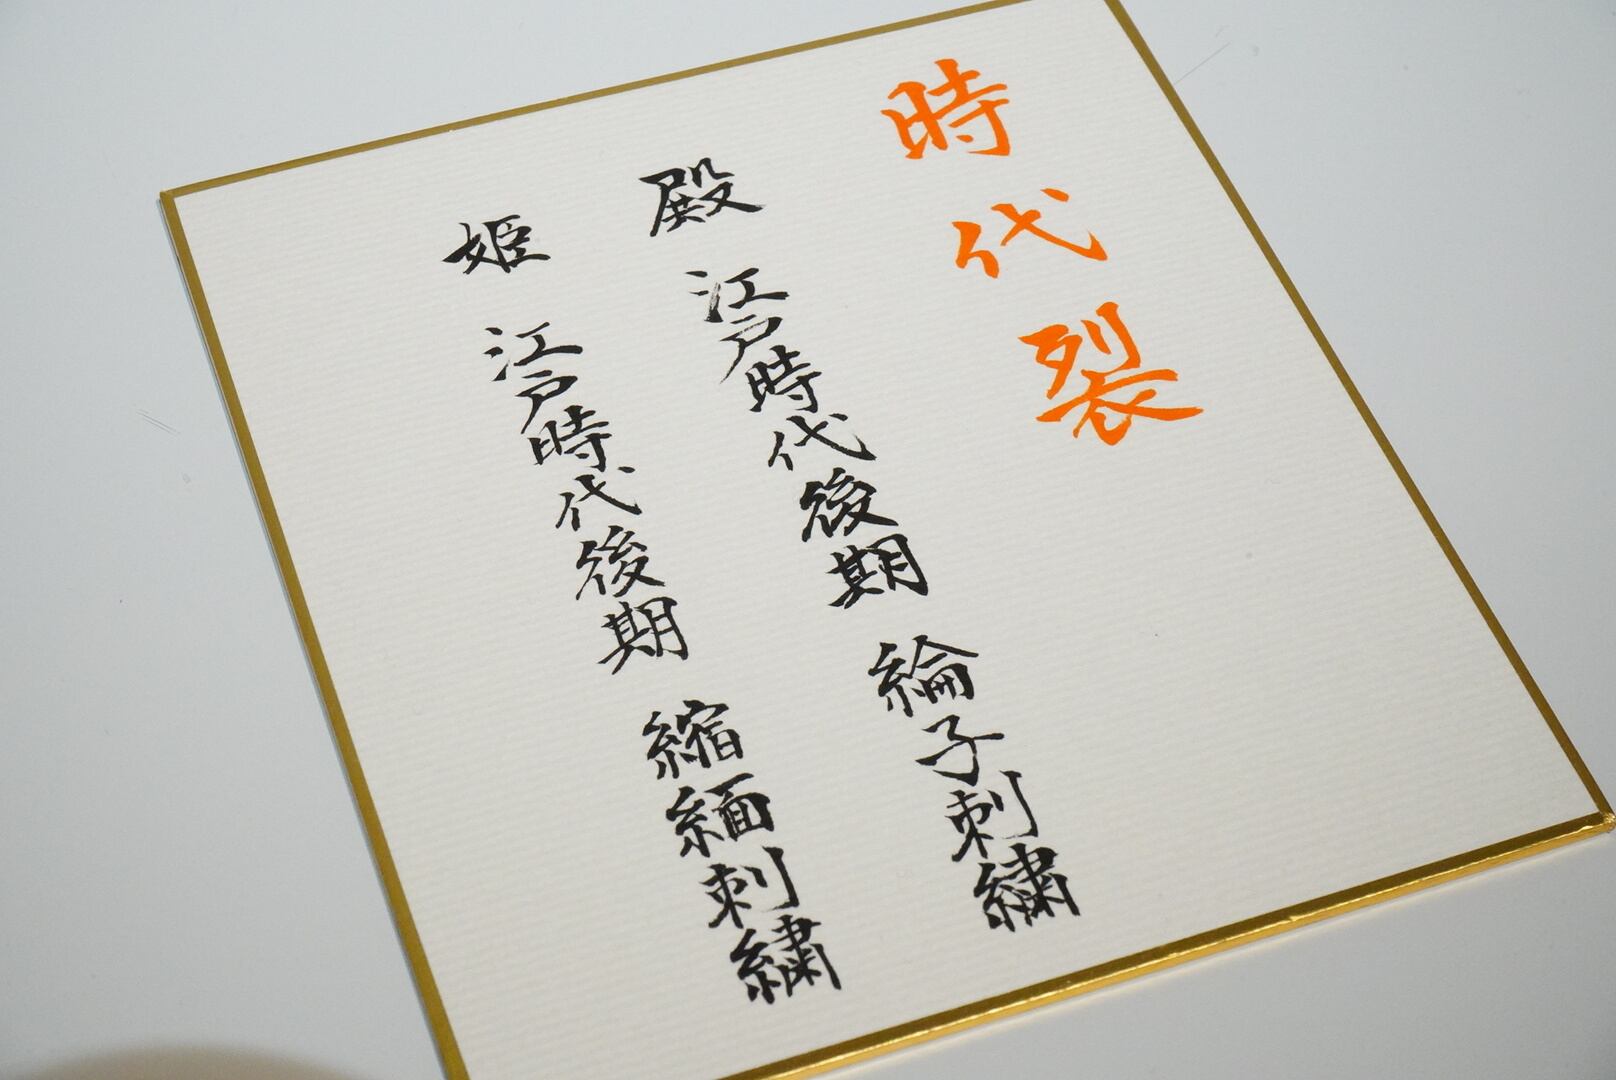 時代裂
殿 江戸時代後期 綸子刺繍
姫 江戸時代後期 縮緬刺繍